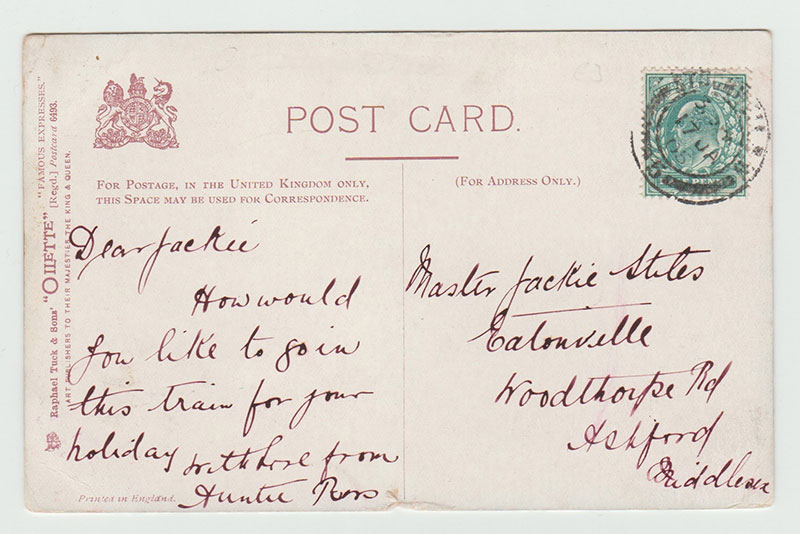 POST CARD.
FOR POSTAGE, IN THE UNITED KINGDOM ONLY,
THIS SPACE MAY BE USED FOR CORRESPONDENCE.
(FOR ADDRESS ONLY.)
Raphael Tuck & Sons' "OILETTE" [Regd.] Postcard 6493.
"FAMOUS EXPRESSES."
ART PUBLISHERS TO THEIR MAJESTIES THE KING & QUEEN.
Dear Jackie
How would
you like to go in
this train for your
holiday with love from
Auntie
Printed in England.
Master Jackie Stiles
Eatonville
Woodthorpe Rd
Ashford
Middlesex